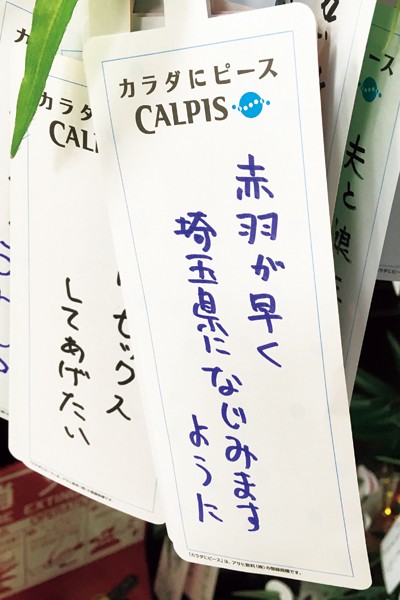 カラダにピース
CALPIS
赤羽が早く
埼玉県になじみます
ように
「カラダにピース」は、アサヒ飲料(株)の登録商標です。
カラダに
CAL
セックス
してあげたい
ピース
夫と娘